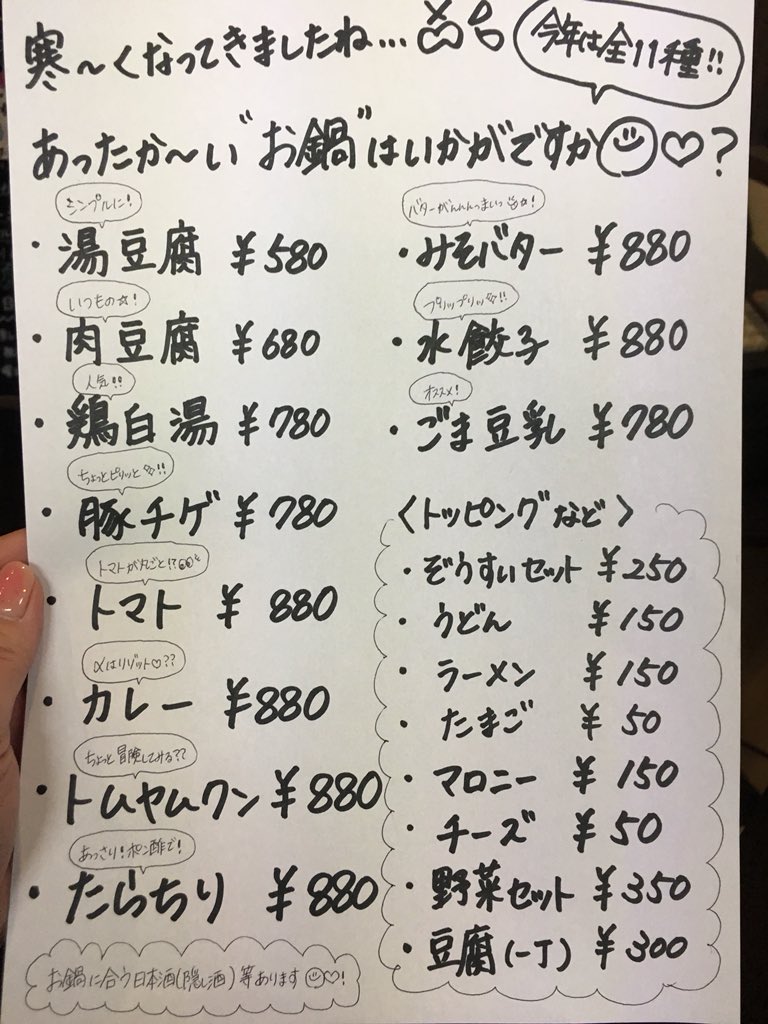 寒〜くなってきましたね…
今年は全11種!!
あったか〜い"お鍋"はいかがですか♡?
シンプルに!
・湯豆腐 ¥580
いつもの☆!
・肉豆腐 ¥680
人気!!
・鶏白湯 ¥780
ちょっとピリッと!!
・豚チゲ ¥780
トマトが丸ごと!?
・トマト ¥880
〆はリゾット♡??
・カレー ¥880
ちょっと冒険してみる??
・トムヤムクン ¥880
あっさり!ポン酢で!
・たらちり ¥880
バターがんんんまいっ!
・みそバター ¥880
プリップリッ!!
・水餃子 ¥880
オススメ!
・ごま豆乳 ¥780
〈トッピングなど〉
・ぞうすいセット ¥250
・うどん ¥150
・ラーメン ¥150
・たまご ¥50
・マロニー ¥150
・チーズ ¥50
・野菜セット ¥350
・豆腐(一丁) ¥300
お鍋に合う日本酒(隠し酒)等あります♡!